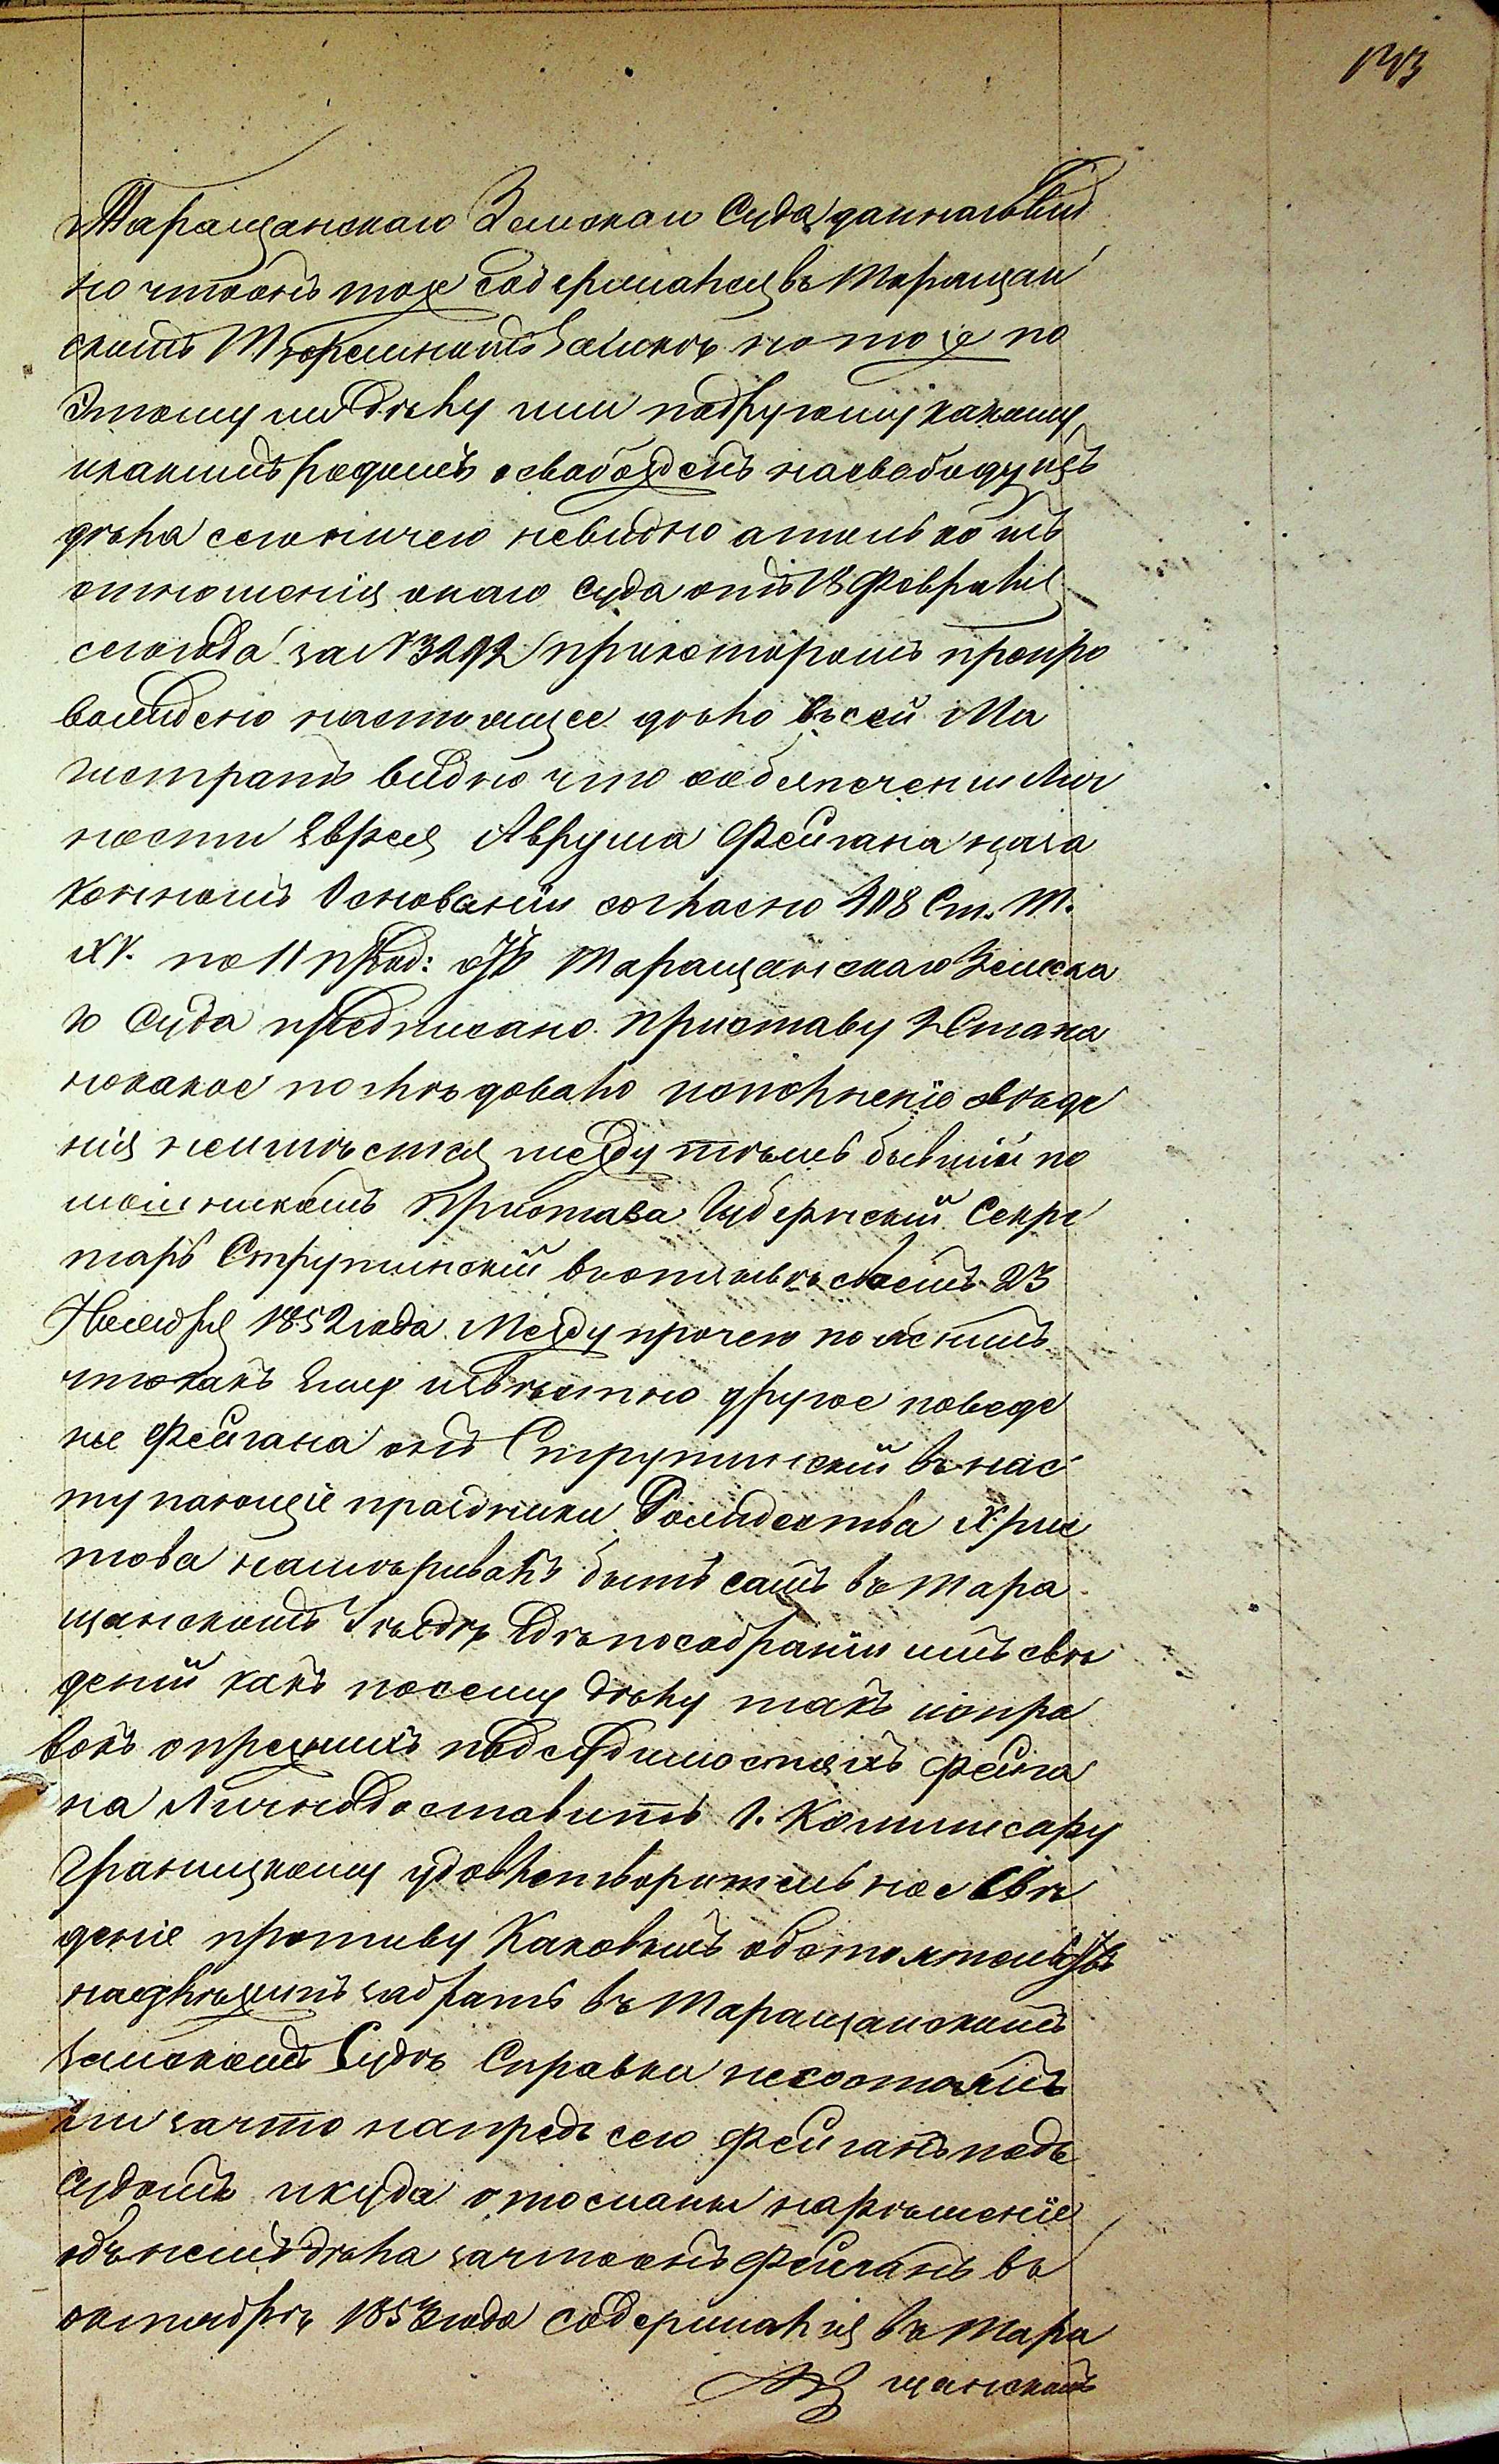 Таращанскаго Земскаго Суда данными вид
но что онъ тоже содержался въ Таращан
скомъ Тюремномъ Замкѣ но тоже по
этому ли дѣлу или подругому какому
и какимъ родомъ освобожденъ на свободу изъ
дѣла сего ничего невидно а только изъ
отношенія онаго Суда отъ 18 Февраля
сего года за N 3292 при которомъ препро
вождено настоящее дѣло въ сей Ма
гистратъ видно что о обезпеченіи Лич
ности Еврея Аврума Фейгана на за
конномъ Основаніи согласно 408 Ст. Т.
XV. по 11 прод: отъ Таращанскаго Земска
го Суда предписано Приставу 2 Стана
но какое послѣдовало исполненіе свѣде
нія неимѣется между тѣмъ бывшій по
мощникомъ Пристава Губернскій Секре
тарь Струтинскій въ отзывѣ своемъ 23
Ноября 1852 года Между прочего пояснилъ
что какъ Ему извѣстно другое поведе
ніе Фейгана онъ Струтинскій въ нас
тупающіе праздники Рождества Хрис
това намѣривалъ быть самъ въ Тара
щанскомъ Уѣздѣ гдѣ по собраніи имъ свѣ
деній какъ посему дѣлу такъ и спра
вокъ о прежнихъ подсудимостяхъ Фейга
на Лично доставитъ Г. Коммисару
Границкому удовлетворительное Свѣ
деніе противу Каковымъ обстоятельствъ
надлежитъ забрать въ Таращанскимъ
Земскомъ Судѣ Справки несостоялъ
ли за что напредь сего Фейганъ подъ
Судомъ и куда отосланы на рѣшеніе
объ немъ дѣла за что онъ Фейганъ въ
октябрѣ 1852 года содержался въ Тара
щанскомъ